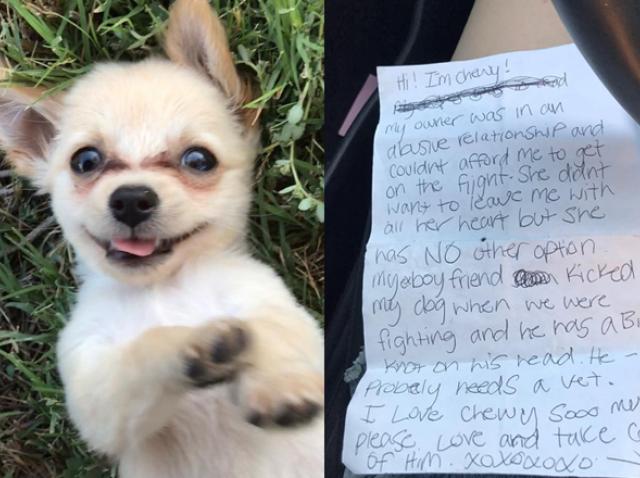 Hi! Im chewy!
my owner was in an
abusive relationship and
couldnt afford me to get
on the flight. She didnt
want to leave me with
all her heart but she
has NO other option.
my boyfriend kicked
my dog when we were
fighting and he has a
knot on his head. He
probely needs a vet.
I Love Chewy Sooo
please Love and take
of Him. xoxoxoxo